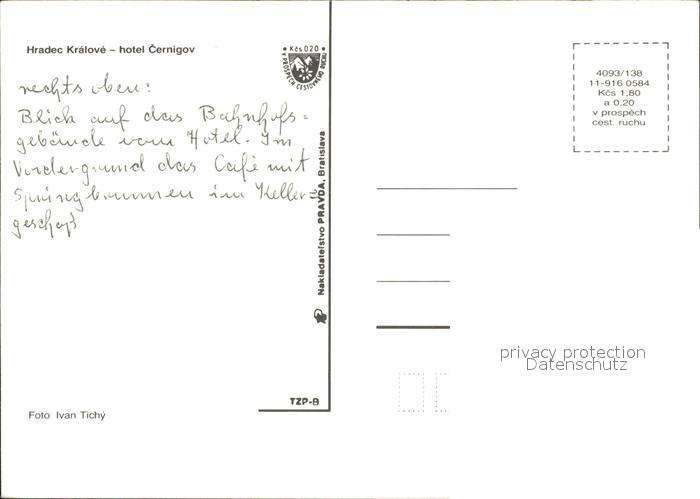 Hradec Králové – hotel Černigov
Kčs 0.20
V PROSPĚCH CESTOVNÍHO RUCHU
rechts oben:
Blick auf das Bahnhofs=
gebäude vom Hotel. Im
Vordergrund das Café mit
Springbrunnen im Keller=
geschoß
Nakladateľstvo PRAVDA, Bratislava
TZP-8
Foto Ivan Tichý
4093/138
11-916 0584
Kčs 1,80
a 0,20
v prospěch
cest. ruchu
privacy protection
Datenschutz